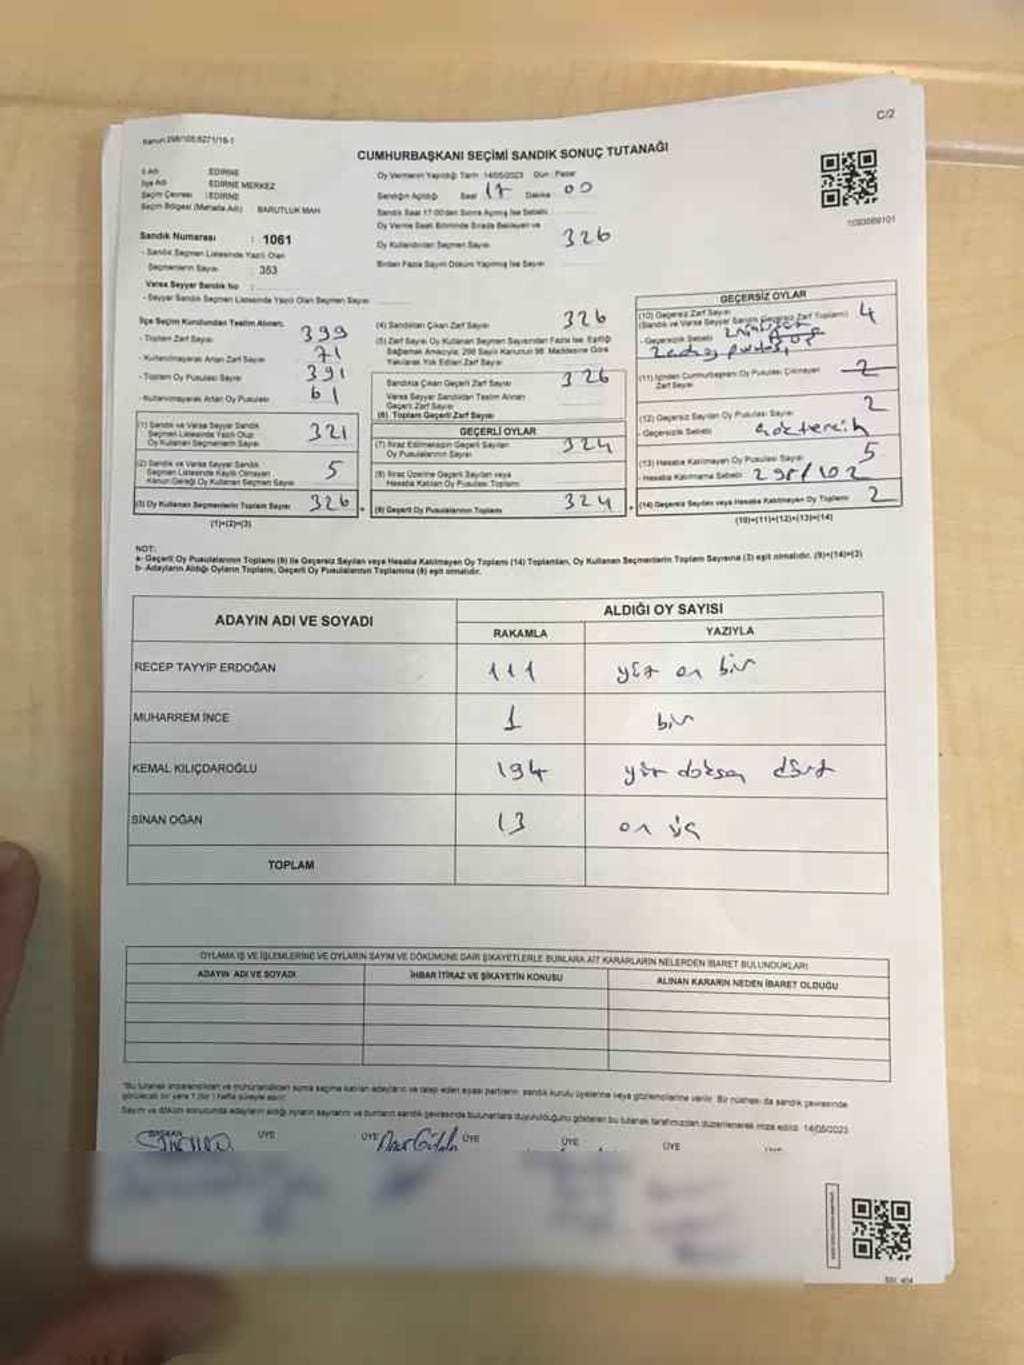 C/2
CUMHURBAŞKANI SEÇİMİ SANDIK SONUÇ TUTANAĞI
İl Adı : EDİRNE
İlçe Adı : EDİRNE MERKEZ
Seçim Çevresi : EDİRNE
Seçim Bölgesi (Mahalle Adı) : BARUTLUK MAH
Oy Vermenin Yapıldığı Tarih: 14/05/2023 Gün: Pazar
Sandığın Açıldığı Saat 17 Dakika 00
Sandık Saat 17:00'den Sonra Açılmış İse Sebebi
Oy Verme Saati Bitiminde Sırada Bekleyen ve
Oy Kullandırılan Seçmen Sayısı 326
Birden Fazla Sayım Döküm Yapılmış İse Sayısı
Sandık Numarası : 1061
- Sandık Seçmen Listesinde Yazılı Olan
Seçmenlerin Sayısı : 353
Varsa Seyyar Sandık No :
- Seyyar Sandık Seçmen Listesinde Yazılı Olan Seçmen Sayısı
İlçe Seçim Kurulundan Teslim Alınan;
- Toplam Zarf Sayısı 399
- Kullanılmayarak Artan Zarf Sayısı 71
- Toplam Oy Pusulası Sayısı 391
- Kullanılmayarak Artan Oy Pusulası 61
(1) Sandık ve Varsa Seyyar Sandık
Seçmen Listesinde Yazılı Olup
Oy Kullanan Seçmenlerin Sayısı 321
(2) Sandık ve Varsa Seyyar Sandık
Seçmen Listesinde Kaydı Olmayan
Kanun Gereği Oy Kullanan Seçmen Sayısı 5
(3) Oy Kullanan Seçmenlerin Toplam Sayısı 326
(1)+(2)=(3)
(4) Sandıktan Çıkan Zarf Sayısı 326
(5) Zarf Sayısı Oy Kullanan Seçmen Sayısından Fazla İse, Eşitliği
Sağlamak Amacıyla, 298 Sayılı Kanunun 98. Maddesine Göre
Yakılarak Yok Edilen Zarf Sayısı
Sandıkta Çıkan Geçerli Zarf Sayısı 326
Varsa Seyyar Sandıktan Teslim Alınan
Geçerli Zarf Sayısı
(6) Toplam Geçerli Zarf Sayısı
GEÇERLİ OYLAR
(7) İtiraz Edilmeksizin Geçerli Sayılan
Oy Pusulalarının Sayısı 324
(8) İtiraz Üzerine Geçerli Sayılan veya
Hesaba Katılan Oy Pusulası Toplamı
(9) Geçerli Oy Pusulalarının Toplamı 324
GEÇERSİZ OYLAR
(10) Geçersiz Zarf Sayısı 4
(Sandık ve Varsa Seyyar Sandık Geçersiz Zarf Toplamı)
- Geçersizlik Sebebi
(11) İçinden Cumhurbaşkanı Oy Pusulası Çıkmayan
Zarf Sayısı 2
(12) Geçersiz Sayılan Oy Pusulası Sayısı 2
- Geçersizlik Sebebi
(13) Hesaba Katılmayan Oy Pusulası Sayısı 5
- Hesaba Katılmama Sebebi 298/102
(14) Geçersiz Sayılan veya Hesaba Katılmayan Oy Toplamı 2
(10)+(11)+(12)+(13)=(14)
NOT:
a- Geçerli Oy Pusulalarının Toplamı (9) ile Geçersiz Sayılan veya Hesaba Katılmayan Oy Toplamı (14) Toplamları, Oy Kullanan Seçmenlerin Toplam Sayısına (3) eşit olmalıdır. (9)+(14)=(3)
b- Adayların Aldığı Oyların Toplamı, Geçerli Oy Pusulalarının Toplamına (9) eşit olmalıdır.
ADAYIN ADI VE SOYADI
ALDIĞI OY SAYISI
RAKAMLA YAZIYLA
RECEP TAYYİP ERDOĞAN 111 yüz on bir
MUHARREM İNCE 1 bir
KEMAL KILIÇDAROĞLU 194 yüz doksan dört
SİNAN OĞAN 13 on üç
TOPLAM
OYLAMA İŞ VE İŞLEMLERİNE VE OYLARIN SAYIM VE DÖKÜMÜNE DAİR ŞİKAYETLERLE BUNLARA AİT KARARLARIN NELERDEN İBARET BULUNDUKLARI
ADAYIN ADI VE SOYADI
İHBAR İTİRAZ VE ŞİKAYETİN KONUSU
ALINAN KARARIN NEDEN İBARET OLDUĞU
BAŞKAN ÜYE ÜYE ÜYE ÜYE ÜYE